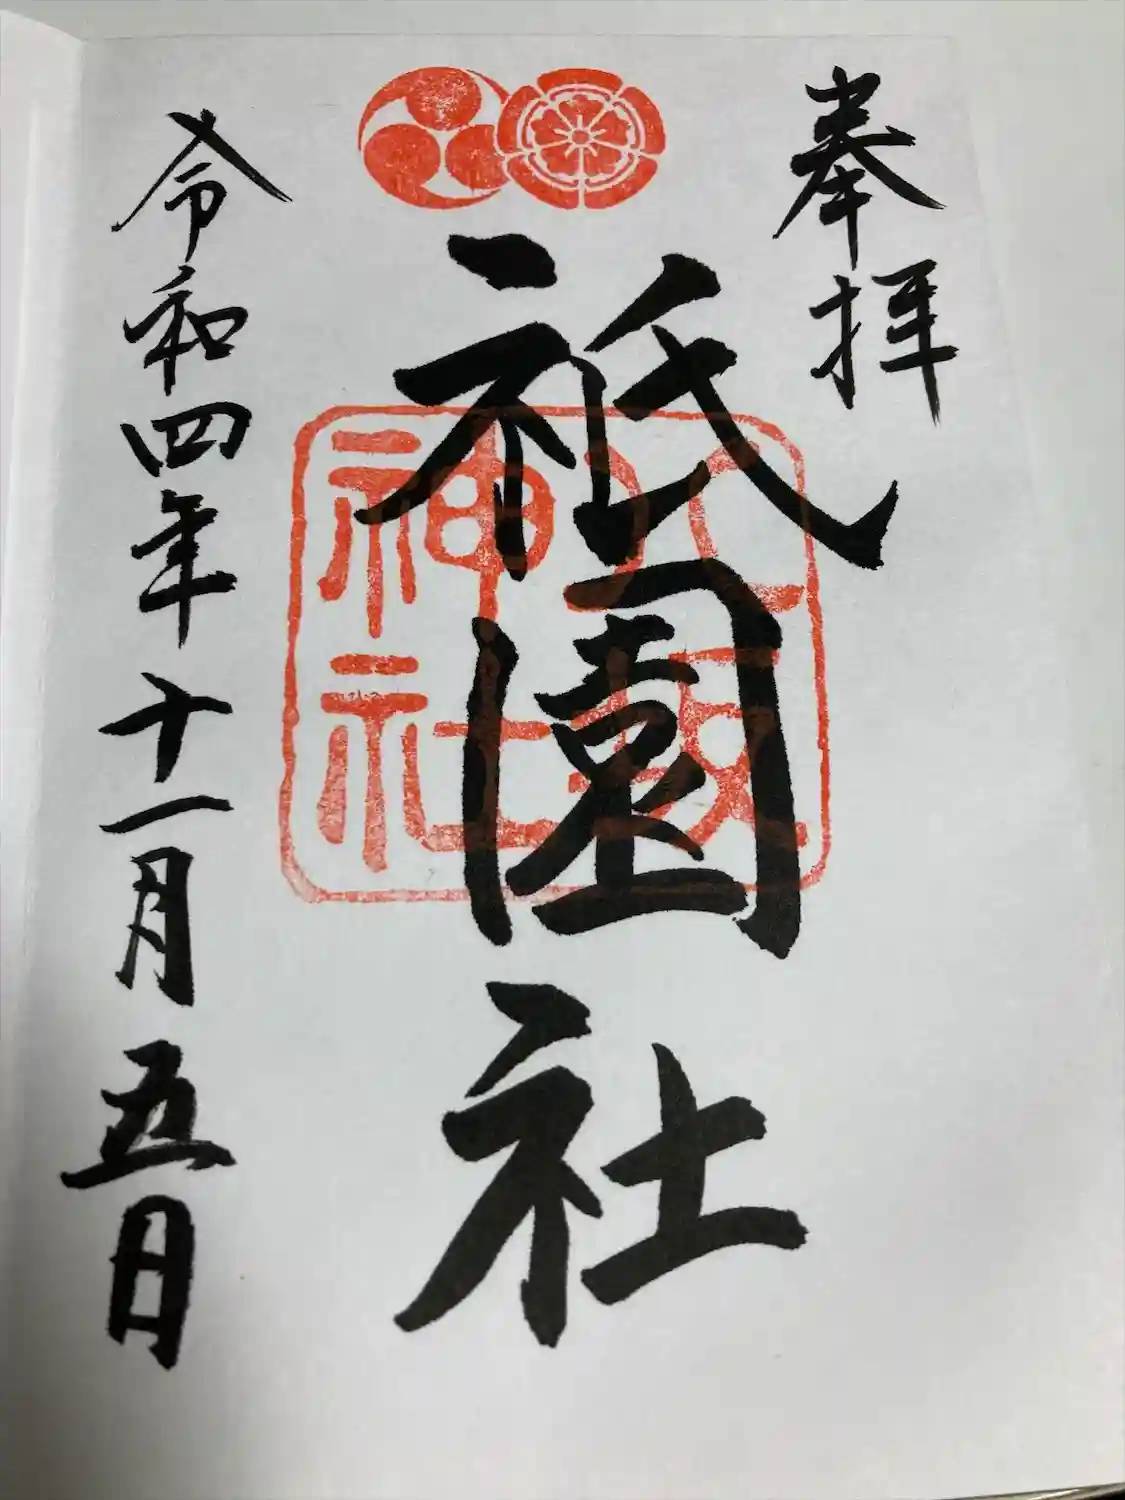 奉拝
祇園社
神社
令和四年十一月五日